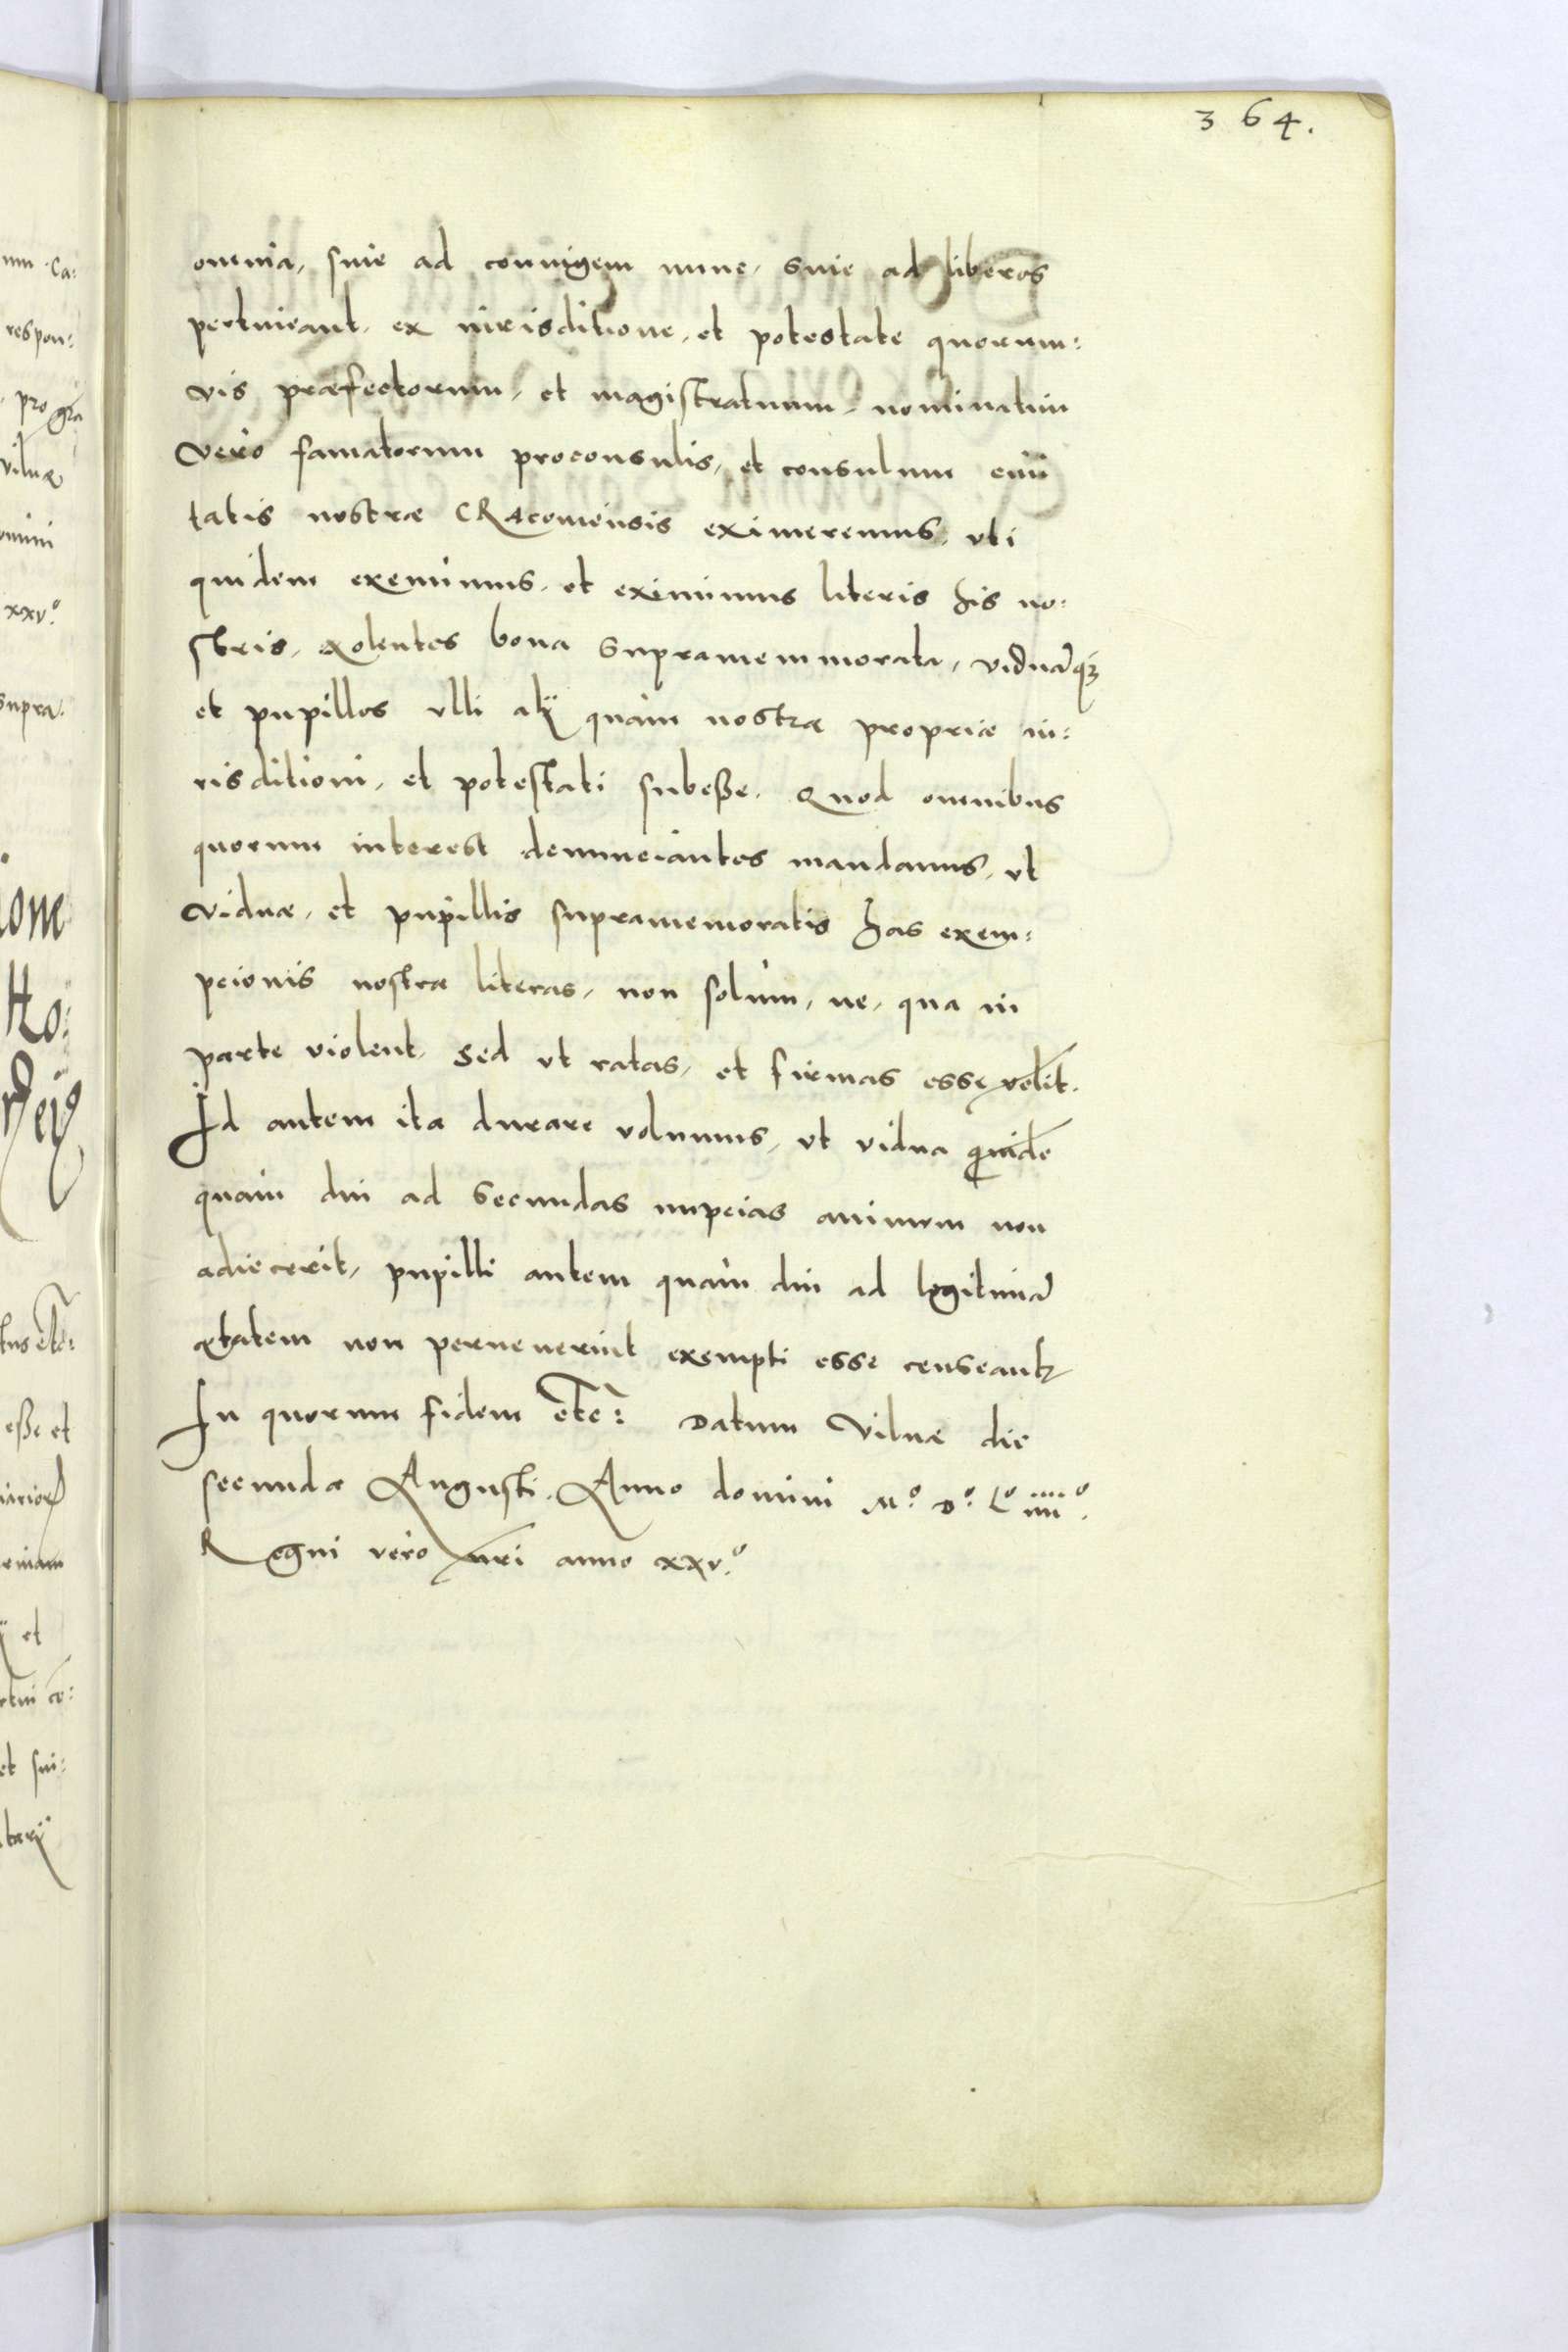 364.
omnia, siue ad coniugem nunc, siue ad liberos
pertineant, ex iurisditione, et potestate quorum:
vis præfectorum, et magistratuum, nominatim
vero famatorum proconsulis, et consulum ciui
tatis nostræ CRacouiensis eximeremus, vti
quidem exemimus, et eximimus literis his no:
stris, Volentes bona supramemmorata, viduaq̃ꝫ
et pupillos vlli alij quàm nostræ propriæ iu:
risditioni, et potestati subeße. Quod omnibus
quorum interest denunciantes mandamus, vt
viduæ, et pupillis supramemoratis has exem:
pcionis nostræ literas, non solùm, ne, qua in
parte violent, sed vt ratas, et firmas esse velĩt.
Id autem ita durare volumus, vt vidua quidẽ
quàm diu ad secundas nupcias animum non
adiecerit, pupilli autem quàm diu ad legitimã
ætatem non peruenerint exempti esse censeantꝛ
In quorum fidem etc̃: Datum Vilnæ die
secunda Augusti. Anno domini M.º D.º L.º iiii.º
Regni vero nr̃i anno xxv.º
um Ca:
respon:
pro gra
Vilnæ
omini
xxv.º
supra.
Ho:
tus etc̃:
eße et
et
et sui: